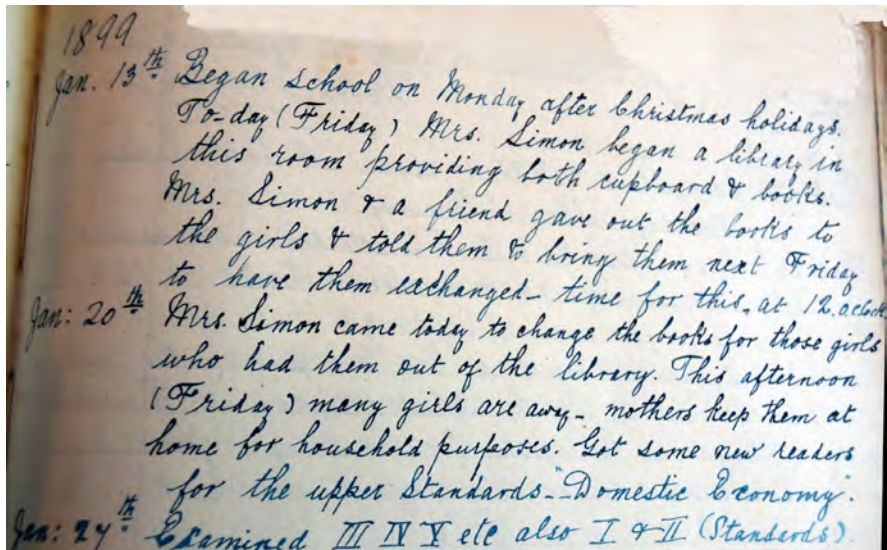 1899
Jan. 13th Began school on Monday after Christmas holidays.
To-day (Friday) Mrs. Simon began a library in
this room providing both cupboard & books.
Mrs. Simon & a friend gave out the books to
the girls & told them to bring them next Friday
to have them exchanged - time for this, at 12.oclock
Jan: 20th Mrs. Simon came today to change the books for those girls
who had them out of the library. This afternoon
(Friday) many girls are away - mothers keep them at
home for household purposes. Got some new readers
for the upper Standards - "Domestic Economy".
Jan: 27th Examined III IV V etc also I & II (Standards).